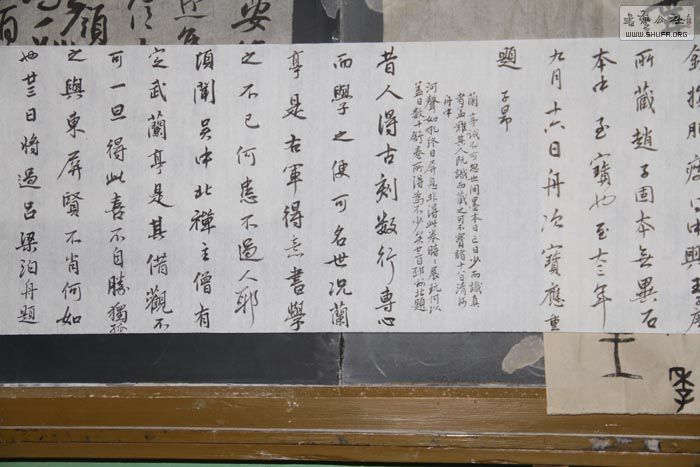 所藏趙子固本無異石
本中至寶也至大三年
九月十六日舟次寶應重
題 子昂
蘭亭誠不可忽世間墨本日亡日少而識真
者益難其人既識而藏之可不寶諸十八日清河
舟中
河聲如吼終日屏息非得此卷時一展玩何以
蓋日數十舒卷所得為不少矣廿二日邳州北題
昔人得古刻數行專心
而學之便可名世况蘭
亭是右軍得意書學
之不已何患不過人耶
頃聞吳中北禪主僧有
定武蘭亭是其借觀不
可一旦得此喜不自勝獨孤
之與東屏賢不肖何如
也廿三日將過呂梁泊舟題
書藝公社
WWW.SHUFA.ORG